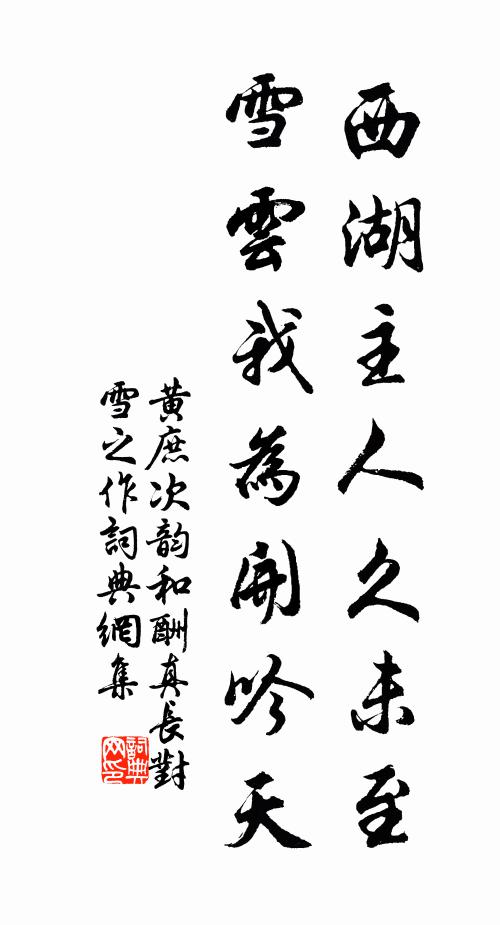 西湖主人久未至
雪雲我為開吟天
黃庶次韵和酬真長對
雪之作詞典網集
詞典
网印